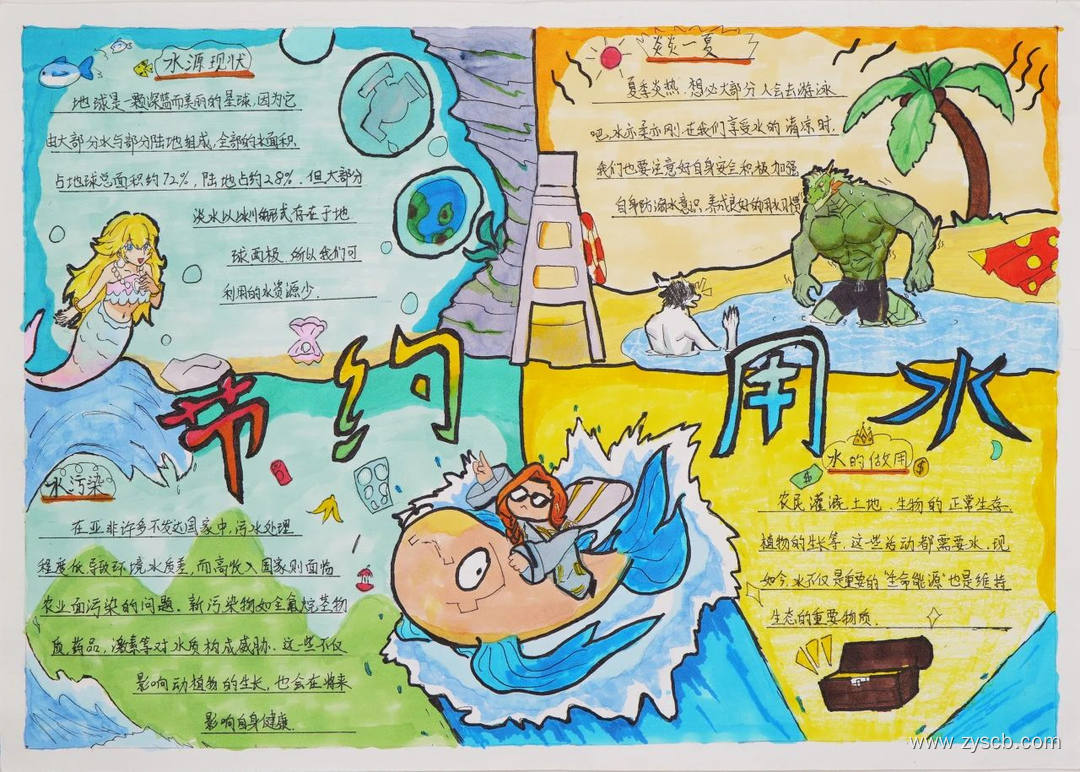 水源现状
地球是一颗深蓝而美丽的星球,因为它
由大部分水与部分陆地组成,全部的水面积
占地球总面积约72%,陆地占约28%.但大部分
淡水以冰川的形式存在于地
球两极.所以我们可
利用的水资源少.
炎炎一夏
夏季炎热,想必大部分人会去游泳
吧,水亦柔亦刚,在我们享受水的清凉时,
我们也要注意好自身安全积极加强
自身防溺水意识,养成良好的用水习惯
节约用水
水污染
在亚非许多不发达国家中,污水处理
程度低导致环境水质差,而高收入国家则面临
农业面污染的问题.新污染物如全氟烷基物
质,药品,激素等对水质构成威胁.这些不仅
影响动植物的生长,也会在将来
影响自身健康.
水的做用
农民灌溉土地.生物的正常生存.
植物的生长等.这些活动都需要水.现
如今,水不仅是重要的"生命能源"也是维持
生态的重要物质.
www.zyscb.com